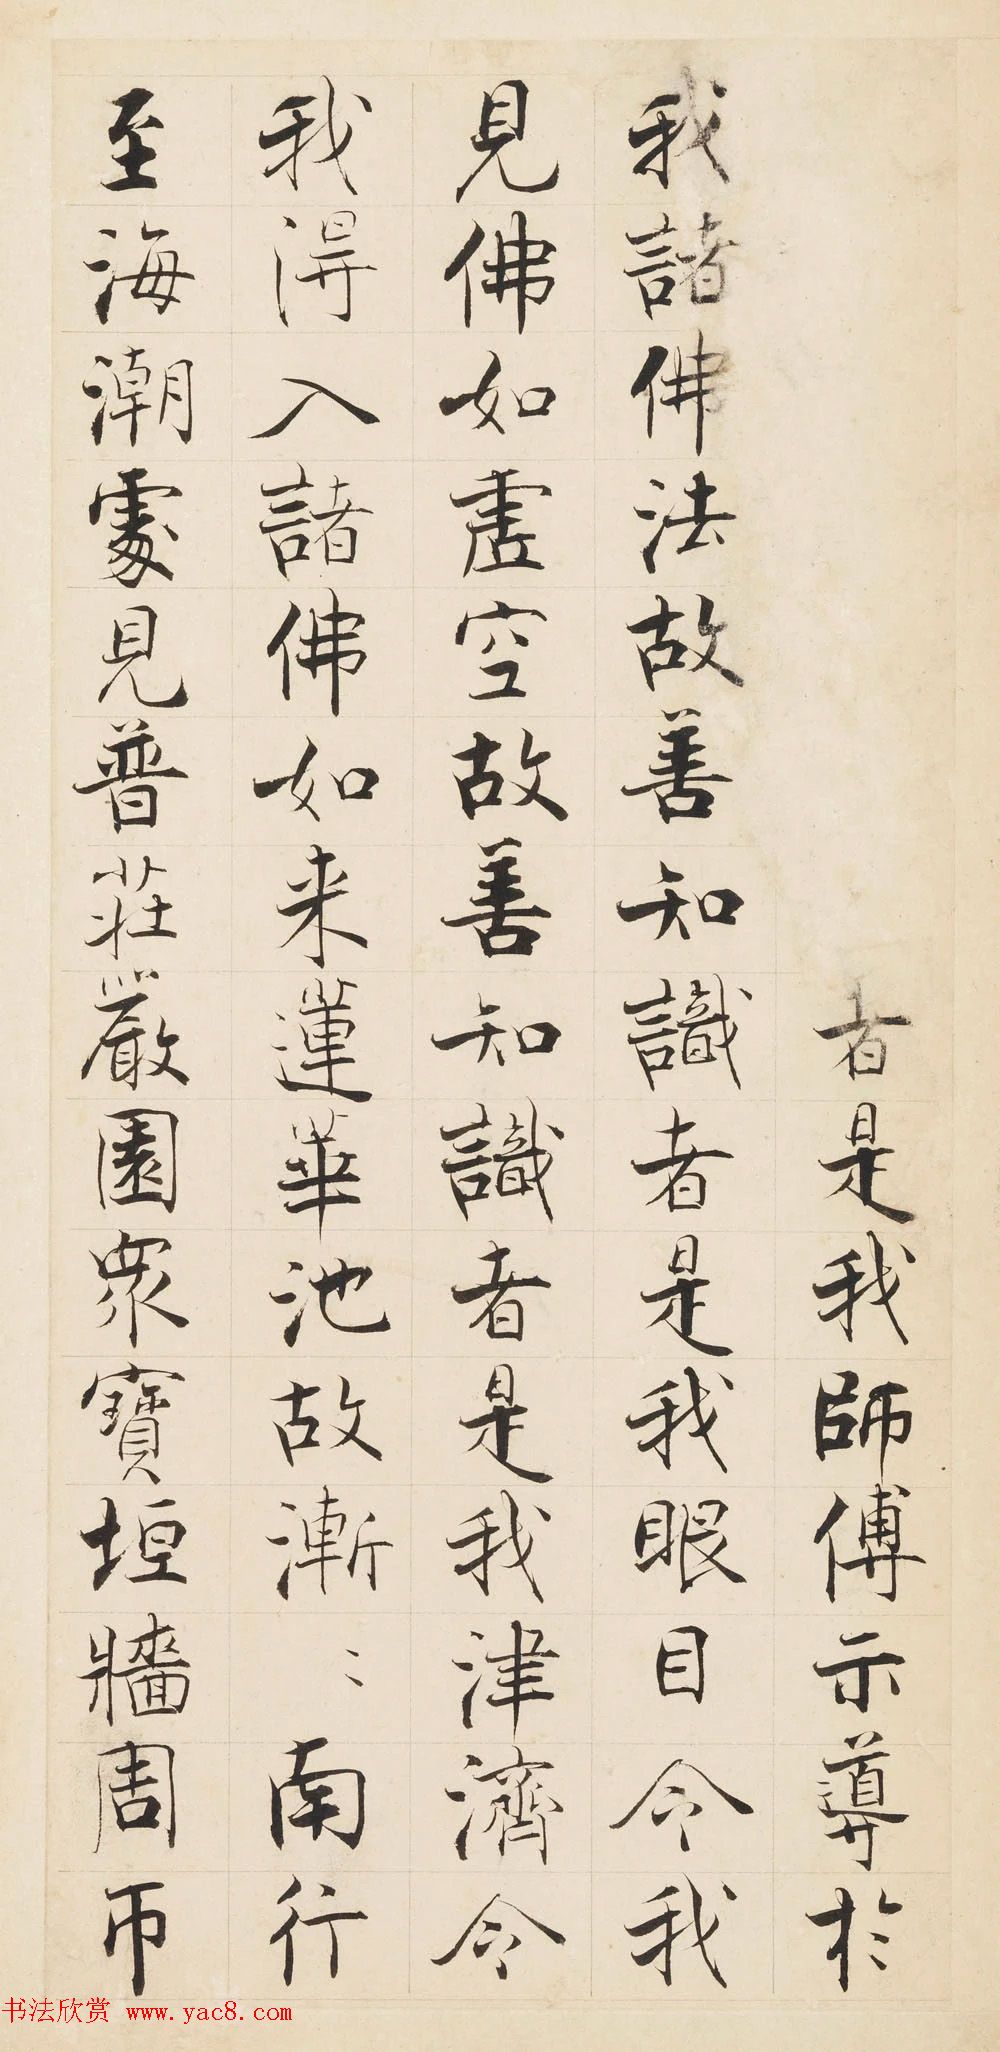 者是我師傅示導於
我諸佛法故善知識者是我眼目令我
見佛如虛空故善知識者是我津濟令
我得入諸佛如来蓮華池故漸〻南行
至海潮處見普莊嚴園衆寶垣牆周帀
书法欣赏 www.yac8.com